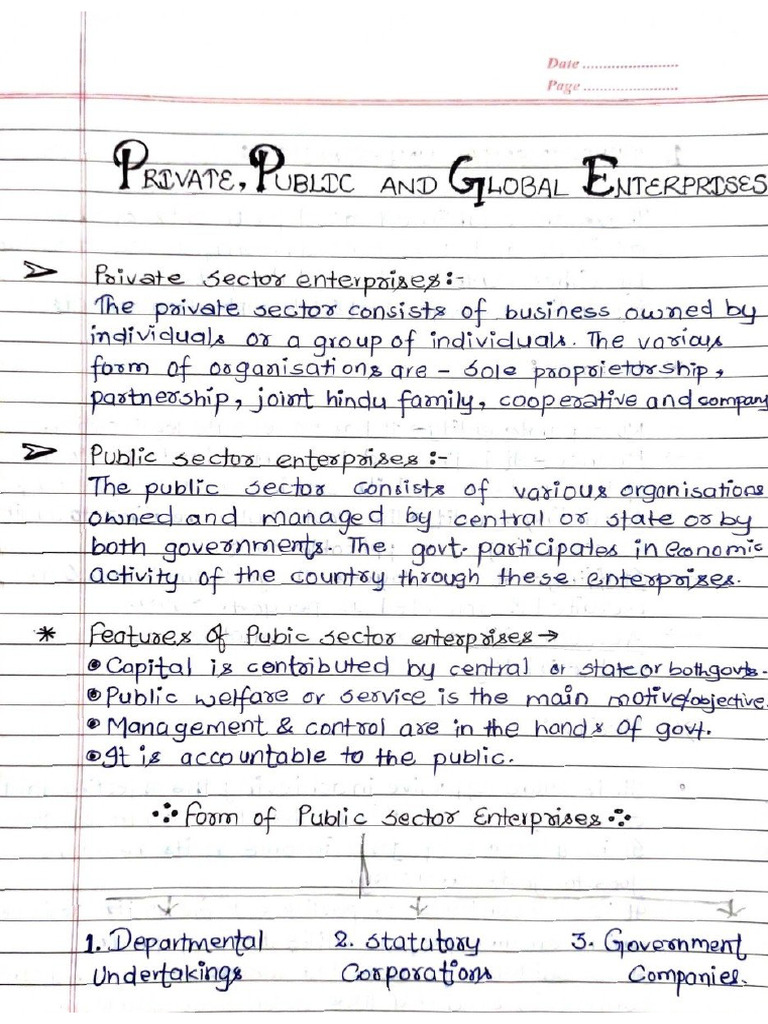 Date ........................
Page ........................
PRIVATE, PUBLIC AND GLOBAL ENTERPRISES
➢ Private sector enterprises:-
The private sector consists of business owned by
individuals or a group of individuals. The various
form of organisations are – sole proprietorship,
partnership, joint hindu family, cooperative and company
➢ Public sector enterprises:-
The public sector consists of various organisations
owned and managed by central or state or by
both governments. The govt. participates in economic
activity of the country through these enterprises.
* Features of Pubic sector enterprises →
• Capital is contributed by central or state or both govts.
• Public welfare or service is the main motive/objective.
• Management & control are in the hands of govt.
• It is accountable to the public.
Form of Public sector Enterprises
1. Departmental 2. Statutory 3. Government
Undertakings Corporations Companies.